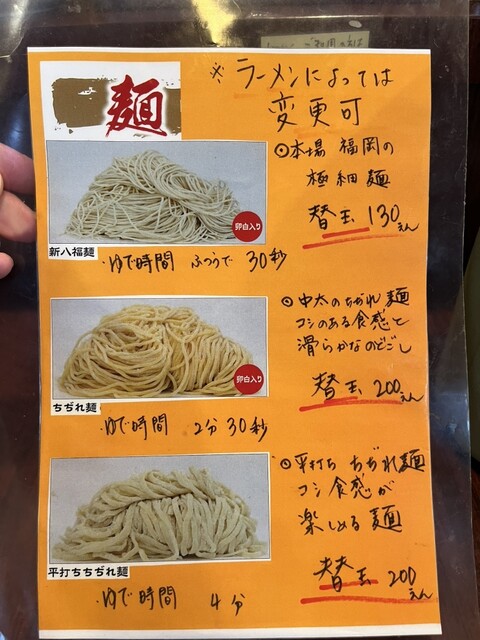 麺
※ラーメンによっては
変更可
卵白入り
新八福麺
◉本場 福岡の
極細麺
替玉 130えん
・ゆで時間 ふつうで 30秒
卵白入り
ちぢれ麺
◉中太のちぢれ麺
コシのある食感と
滑らかなのどごし
替玉 200えん
・ゆで時間 2分30秒
平打ちちぢれ麺
◉平打ち ちぢれ麺
コシ食感が
楽しめる麺
替玉 200えん
・ゆで時間 4分